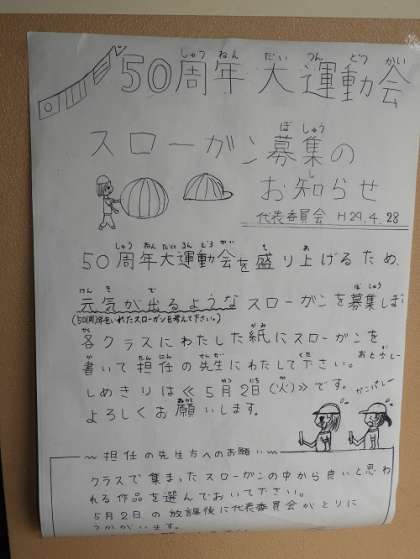 50周年 大運動会
スローガン募集の
お知らせ
代表委員会 H29.4.28
50周年大運動会を盛り上げるため、
元気が出るようなスローガンを募集しま
(50周年をいれたスローガンを考えて下さい。)
各クラスにわたした紙にスローガンを
書いて担任の先生にわたして下さい。
しめきりは≪5月2日(火)≫です。
よろしくお願いします。
~担任の先生方へのお願い~
クラスで集まったスローガンの中から良いと思わ
れる作品を選んでおいて下さい。
5月2日の放課後に代表委員会がとりに
うかがいます。